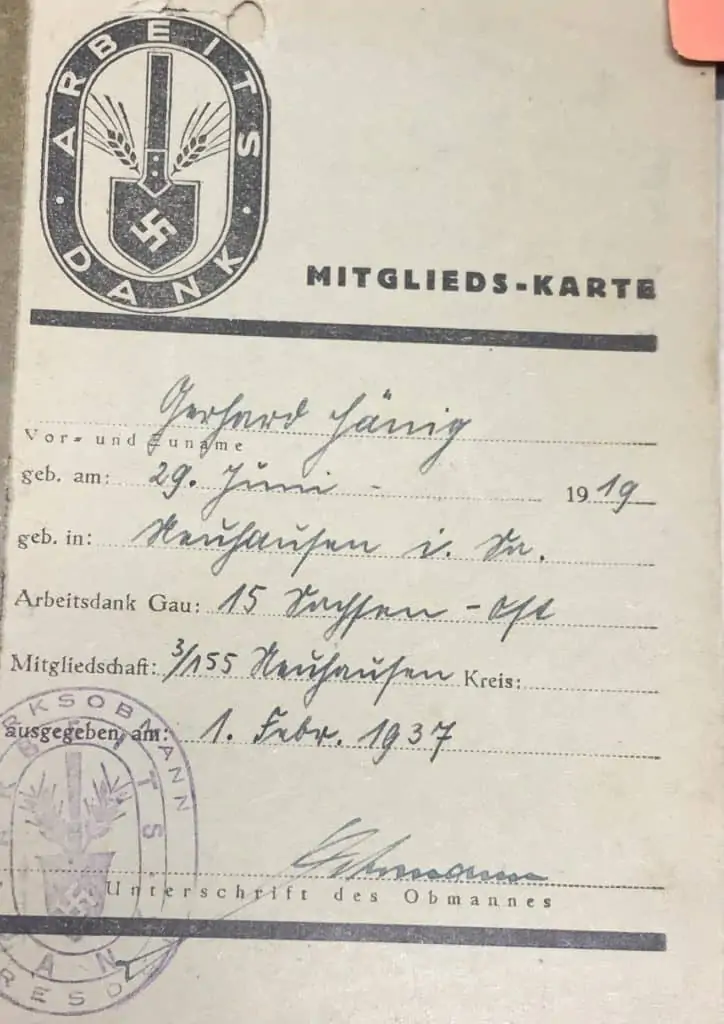 ARBEITS
DANK
MITGLIEDS-KARTE
Gerhard Hänig
Vor- und Zuname
geb. am: 29. Juni - 1919
geb. in: Neuhausen i. Sa.
Arbeitsdank Gau: 15 Sachsen-Ost
Mitgliedschaft: 3/155 Neuhausen Kreis:
ausgegeben am: 1. Febr. 1937
Unterschrift des Obmannes
RKSOBMANN
ARBEITS
DAN
RESD